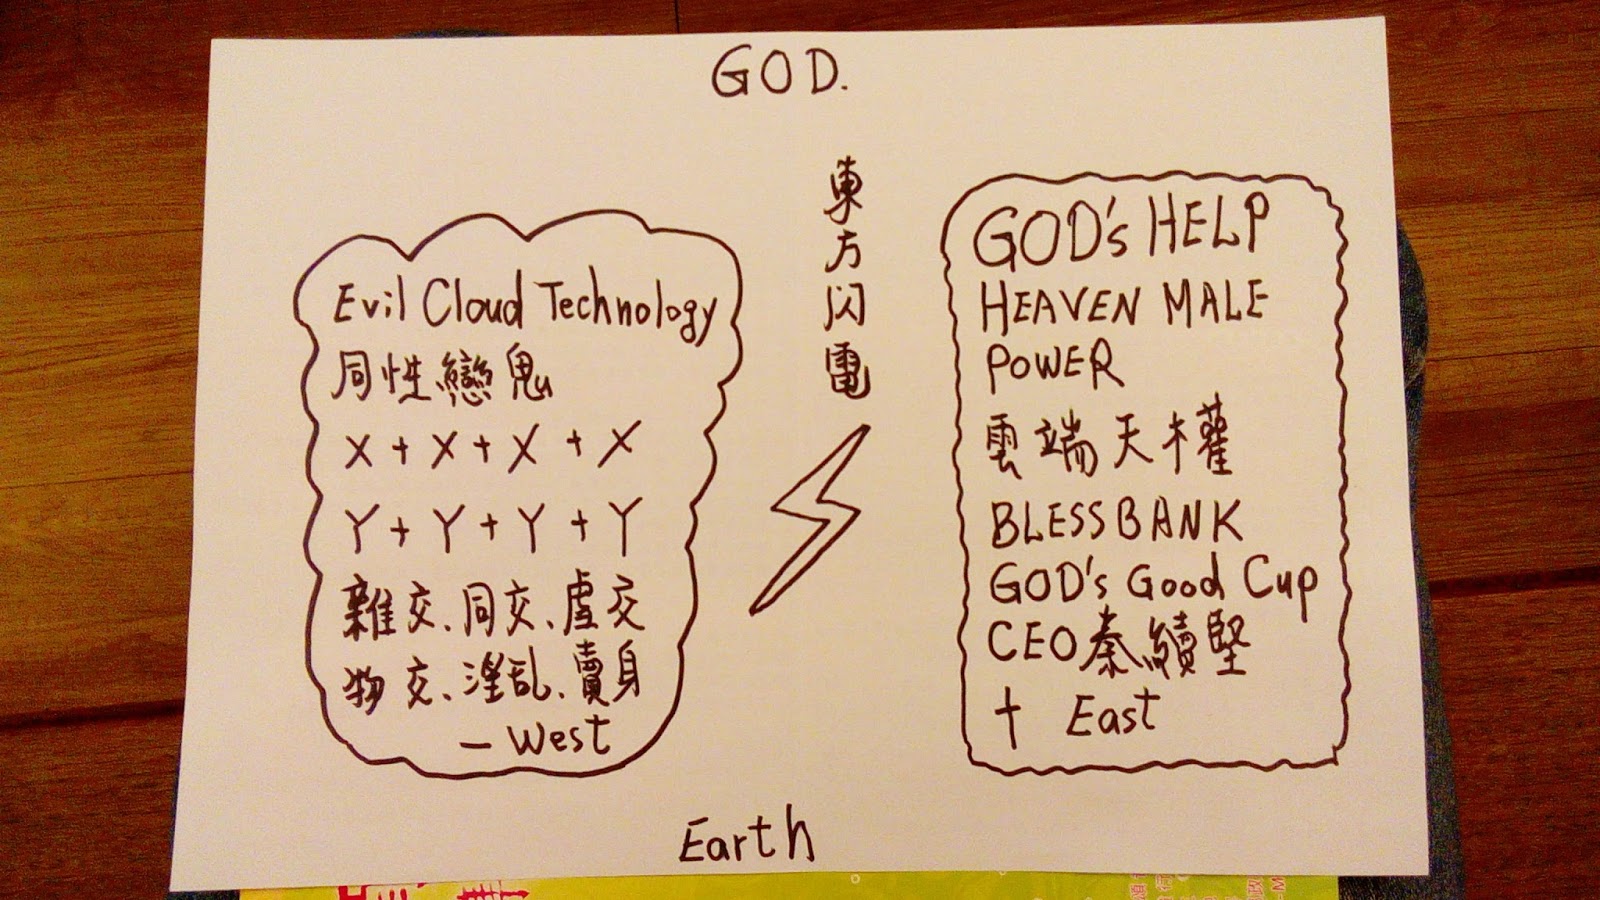 GOD.
東方閃電
Evil Cloud Technology
同性戀鬼
X + X + X + X
Y + Y + Y + Y
雜交、同交、虛交
物交、淫乱、賣身
– West
GOD's HELP
HEAVEN MALE
POWER
雲端天權
BLESS BANK
GOD's Good Cup
CEO秦續堅
† East
Earth